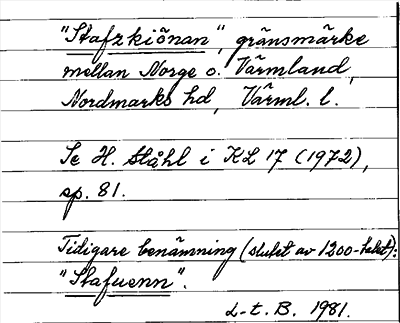 "Stafzkiõnan", gränsmärke
mellan Norge o. Värmland,
Nordmarks hd, Värml. l.
Se H. Ståhl i KL 17 (1972),
sp. 81.
Tidigare benämning (slutet av 1200-talet):
"Stafuenn".
L-t. B. 1981.